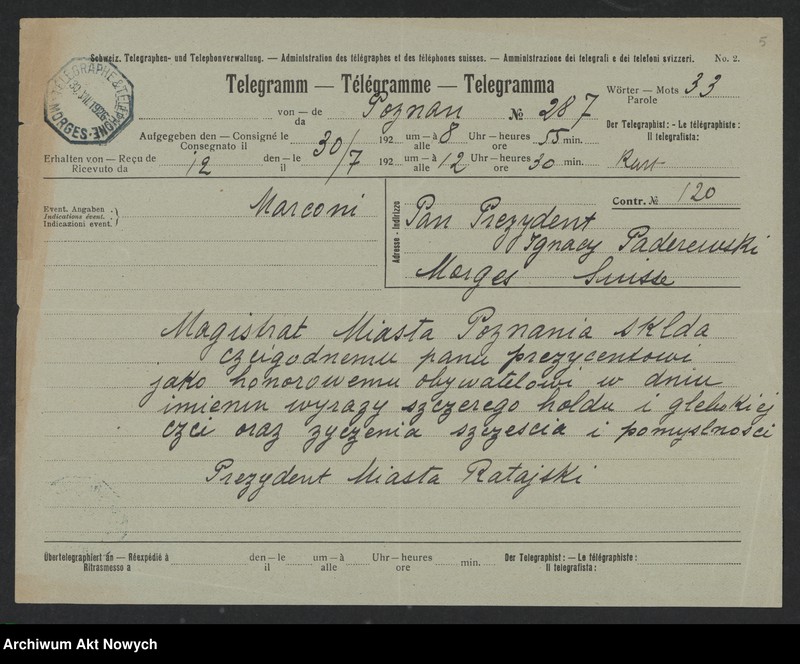 5
Schweiz. Telegraphen- und Telephonverwaltung. — Administration des télégraphes et des téléphones suisses. — Amministrazione dei telegrafi e dei telefoni svizzeri. No. 2.
TELEGRAPHE & TELEPHONE MORGES
30.VII.1926
Telegramm — Télégramme — Telegramma
Wörter — Mots 33
Parole
von — de Poznan № 287
da
Der Telegraphist: - Le télégraphiste:
Il telegrafista:
Aufgegeben den — Consigné le 30/7 192 um — à 8 Uhr — heures 55 min.
Consegnato il alle ore
Erhalten von — Reçu de 12 den — le 192 um — à 12 Uhr — heures 30 min.
Ricevuto da il alle ore
Event. Angaben
Indications évent.
Indicazioni event.
Marconi
Contr. № 120
Adresse - Indirizzo
Pan Prezydent
Ignacy Paderewski
Morges Suisse
Magistrat Miasta Poznania sklda
czcigodnemu panu prezycentowi
jako honorowemu obywatelowi w dniu
imienin wyrazy szczerego holdu i glebokiej
czci oraz zyczenia szczescia i pomyslnosci
Prezydent Miasta Ratajski
Übertelegraphiert an — Réexpédié à den — le um — à Uhr — heures min.
Ritrasmesso a il alle ore
Der Telegraphist: — Le télégraphiste:
Il telegrafista:
Archiwum Akt Nowych